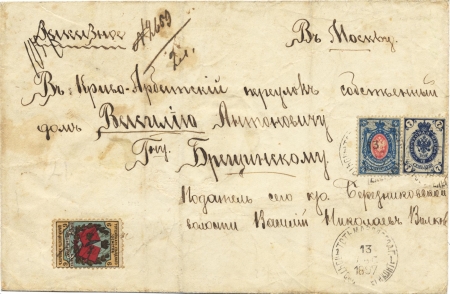 Заказное
№2659
2 л.
Въ Москву.
Въ Криво-Арбатскій переулокъ собственный
домъ Василію Антоновичу
Гну. Брещинскому
Податель сего кр. Бережниковской
волости Василій Николаевъ
13